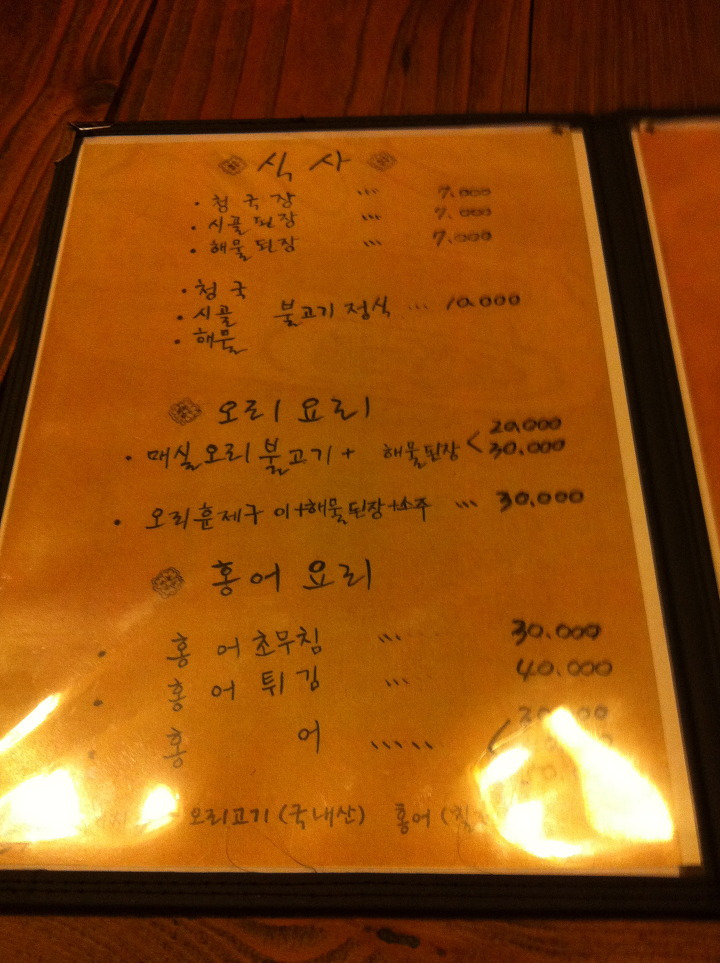 식사
· 청국장 ''' 7,000
· 시골된장 ''' 7,000
· 해물된장 ''' 7,000
· 청국
· 시골 불고기 정식 ... 10,000
· 해물
오리요리
· 매실오리불고기 + 해물된장 < 20,000
30,000
· 오리훈제구이+해물된장+소주 ''' 30,000
홍어요리
· 홍어초무침 ''' 30,000
· 홍어튀김 ''' 40,000
· 홍어 ''''' <
오리고기 (국내산) 홍어 (칠